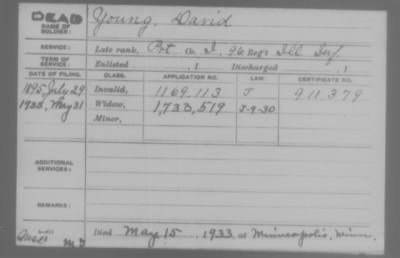 DEAD
NAME OF SOLDIER: Young, David
SERVICE: Late rank, Pvt Co. I, 96 Reg't Ill Inf
TERM OF SERVICE: Enlisted , 1 Discharged , 1
DATE OF FILING. CLASS. APPLICATION NO. LAW. CERTIFICATE NO.
1895, July 29 Invalid, 1169,113 J 911,379
1933, May 31 Widow, 1,733,519 J-9-30
Minor,
ADDITIONAL SERVICES:
REMARKS:
Died May 15, 1933, at Minneapolis, Minn.